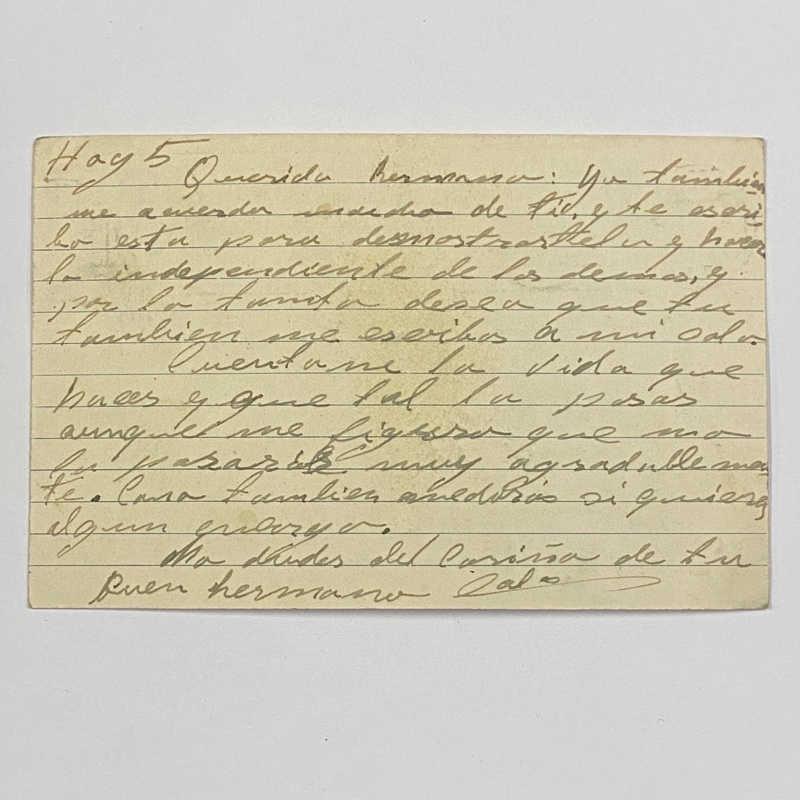 Hoy 5
Querido hermano: Yo también
me acuerdo mucho de ti, y te escri-
bo esta para desmostrartelo y hacer
lo independiente de los demas, y
por lo tanto deseo que tu
tambien me escribas a mi solo.
Cuentame la vida que
haces y que tal la pasas
aunque me figuro que no
la pasarás muy agradableme-
te. Como tambien si quieres
algun encargo.
No dudes del cariño de tu
buen hermano